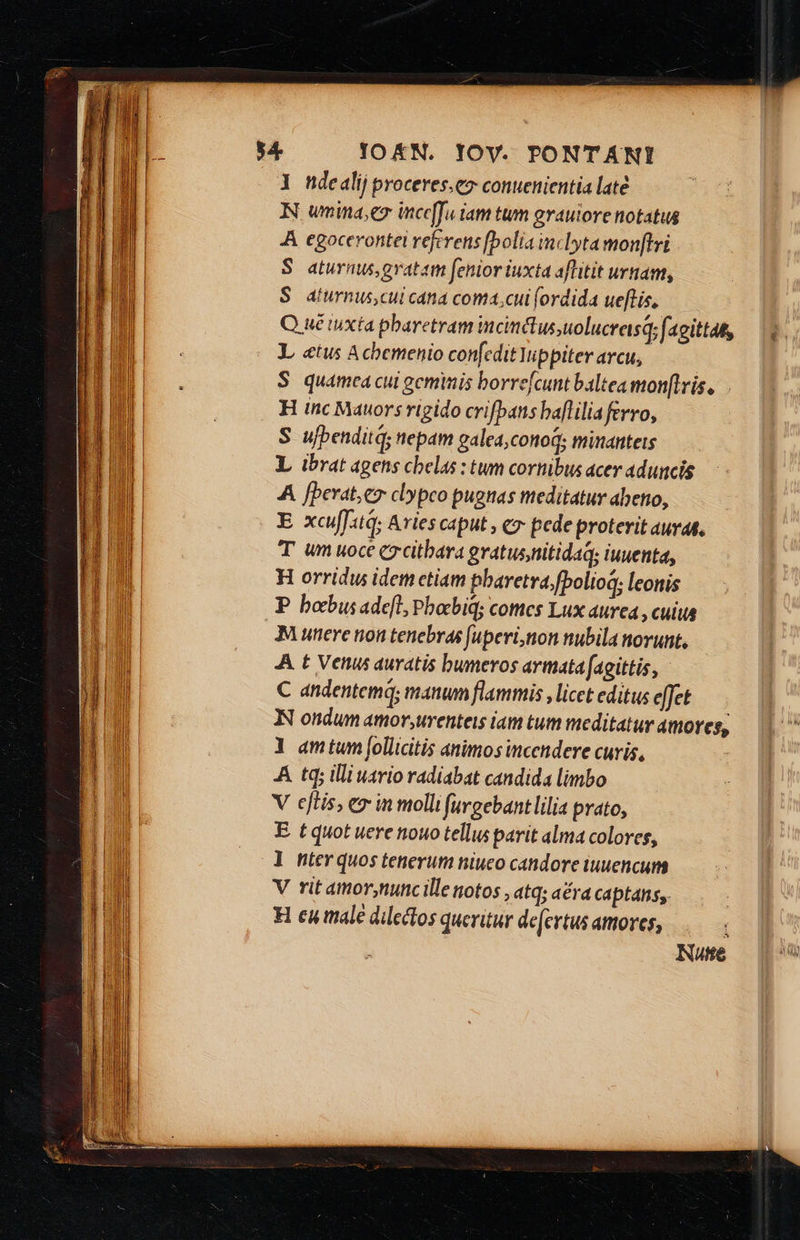 54 IOAN. IOV. PONTANI
I ndealij proceres, & conuenientia latè
N umina, & inceſſu iam tum grauiore notatus
A egocerontei referens ſpolia inclyta monſtri
S aturnus, gratam ſenior iuxta aſtitit urnam,
S aturnus, cui cana coma, cui ſordida ueſtis.
Q uē iuxta pharetram incinctus, uolucreisq; ſagittas,
L ætus Achemenio conſedit Iuppiter arcu,
S quamea cui geminis horreſcunt baltea monſtris.
H inc Mauors rigido criſpans haſtilia ferro,
S uſpenditq; nepam galea, conoq; minanteis
L ibrat agens chelas: tum cornibus acer aduncis
A ſperat, & clypeo pugnas meditatur aheno,
E xcuſſatq; Aries caput, & pede proterit auras.
T um uoce & cithara gratus, nitidaq; iuuenta,
H orridus idem etiam pharetra, ſpolioq; leonis
P hœbus adeſt, Phœbiq; comes Lux aurea, cuius
M unere non tenebras ſuperi, non nubila norunt.
A t Venus auratis humeros armata ſagittis,
C andentemq; manum flammis, licet editus eſſet
N ondum amor, urenteis iam tum meditatur amores,
I am tum ſollicitis animos incendere curis.
A tq; illi uario radiabat candida limbo
V eſtis, & in molli ſurgebant lilia prato,
E t quot uere nouo tellus parit alma colores,
I nter quos tenerum niueo candore iuuencum
V rit amor, nunc ille notos, atq; aëra captans,
H eu malè dilectos queritur deſertus amores,
Nunc